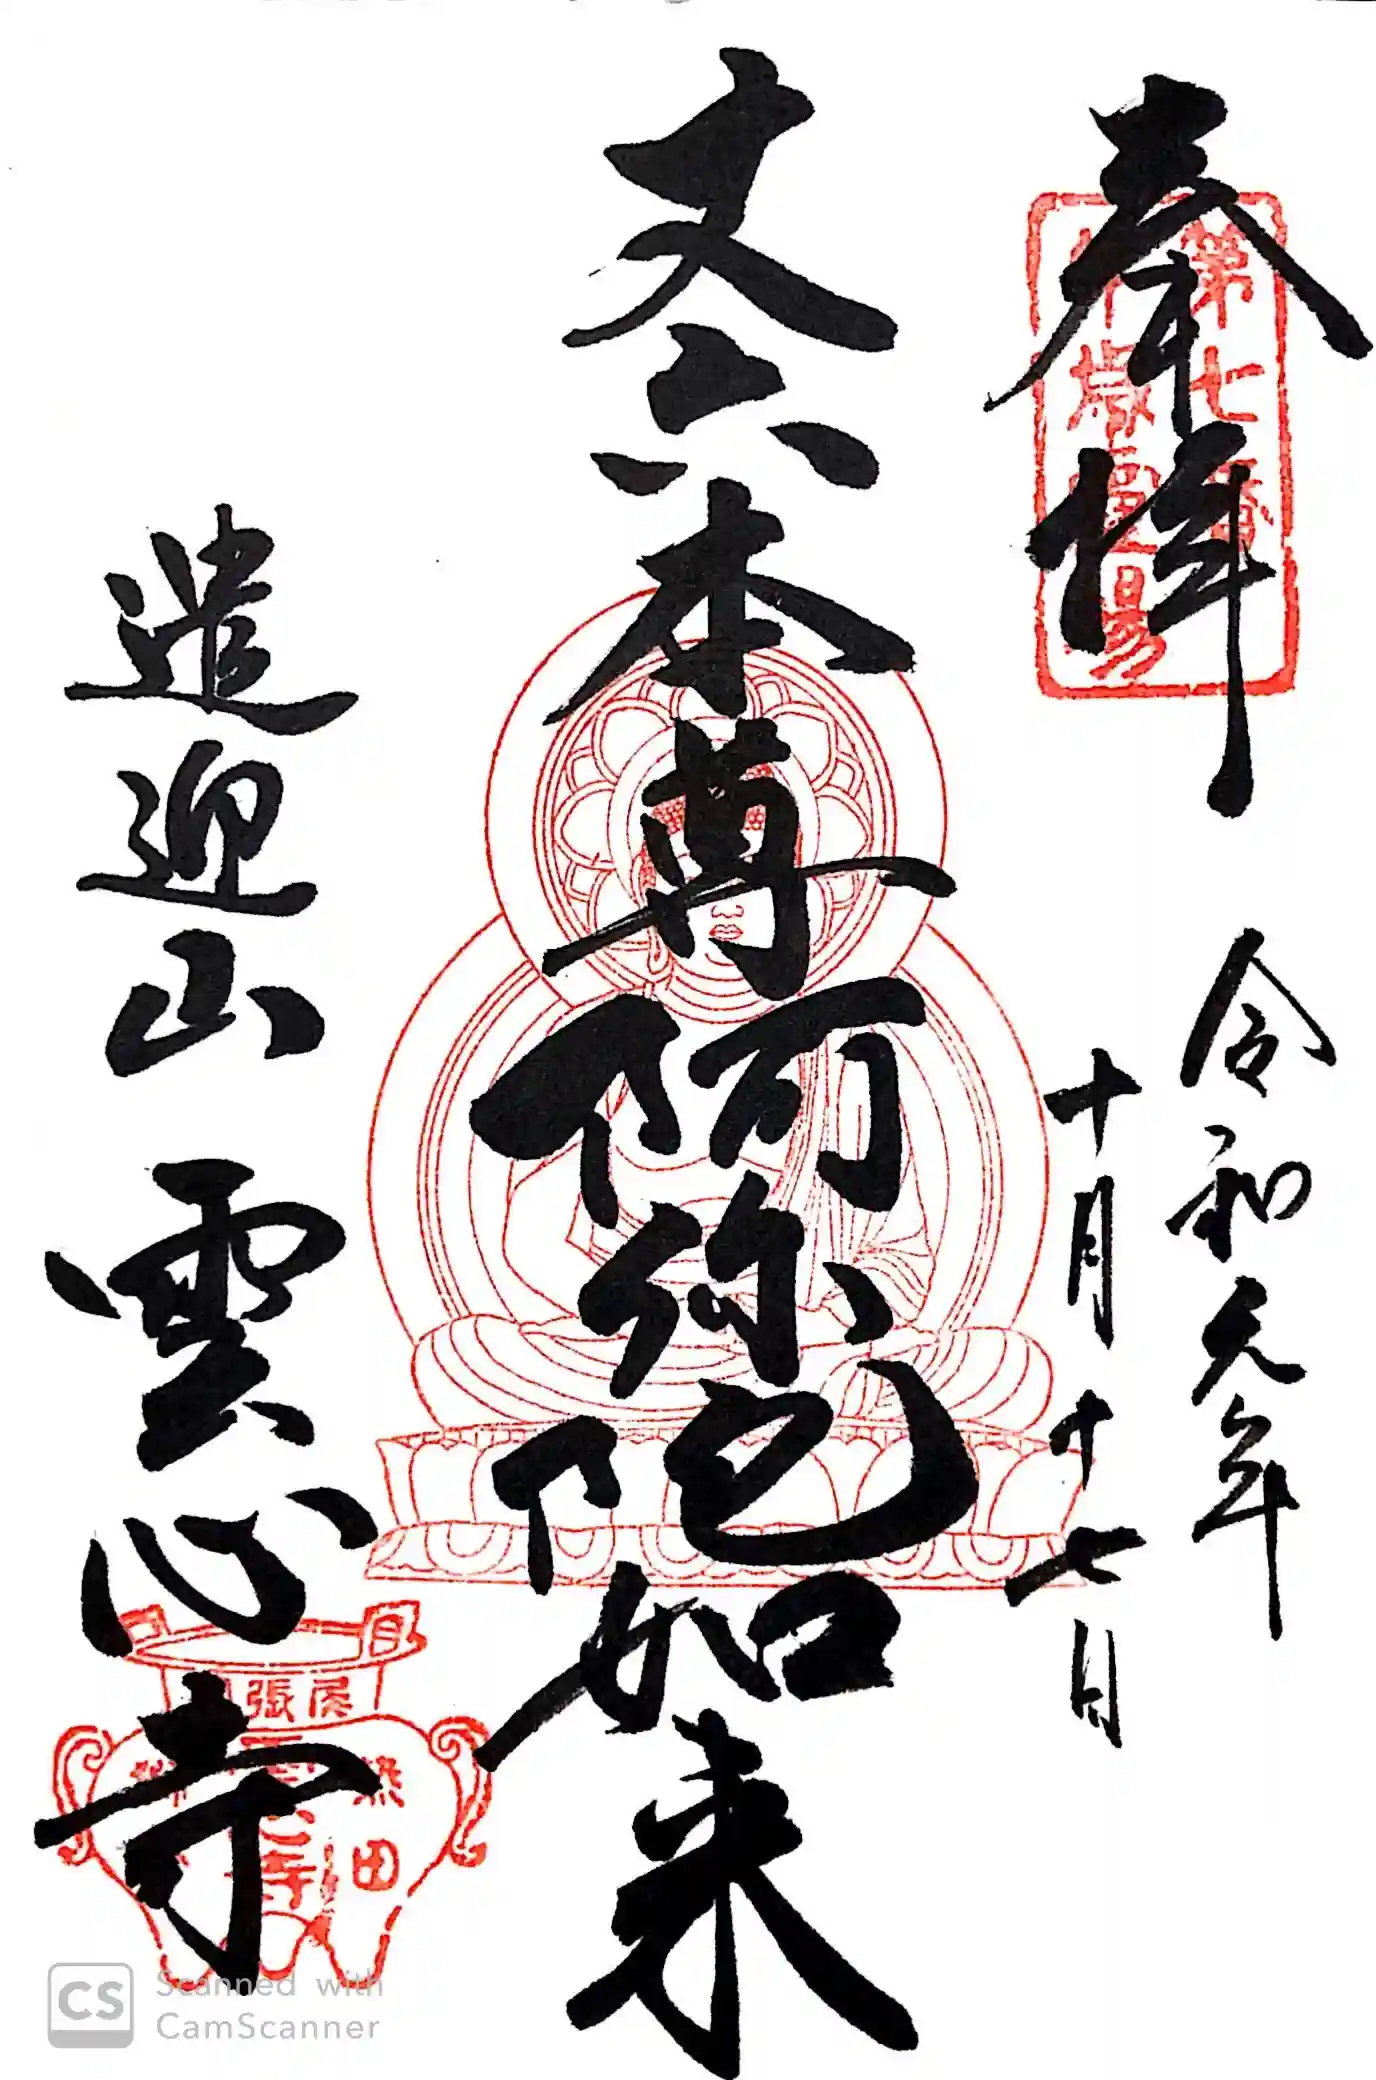 奉拝
令和元年
十月十七日
丈六本尊阿弥陀如来
遣迎山 雲心寺
第七番
霊場
尾張
熱田
寺
CS Scanned with
CamScanner